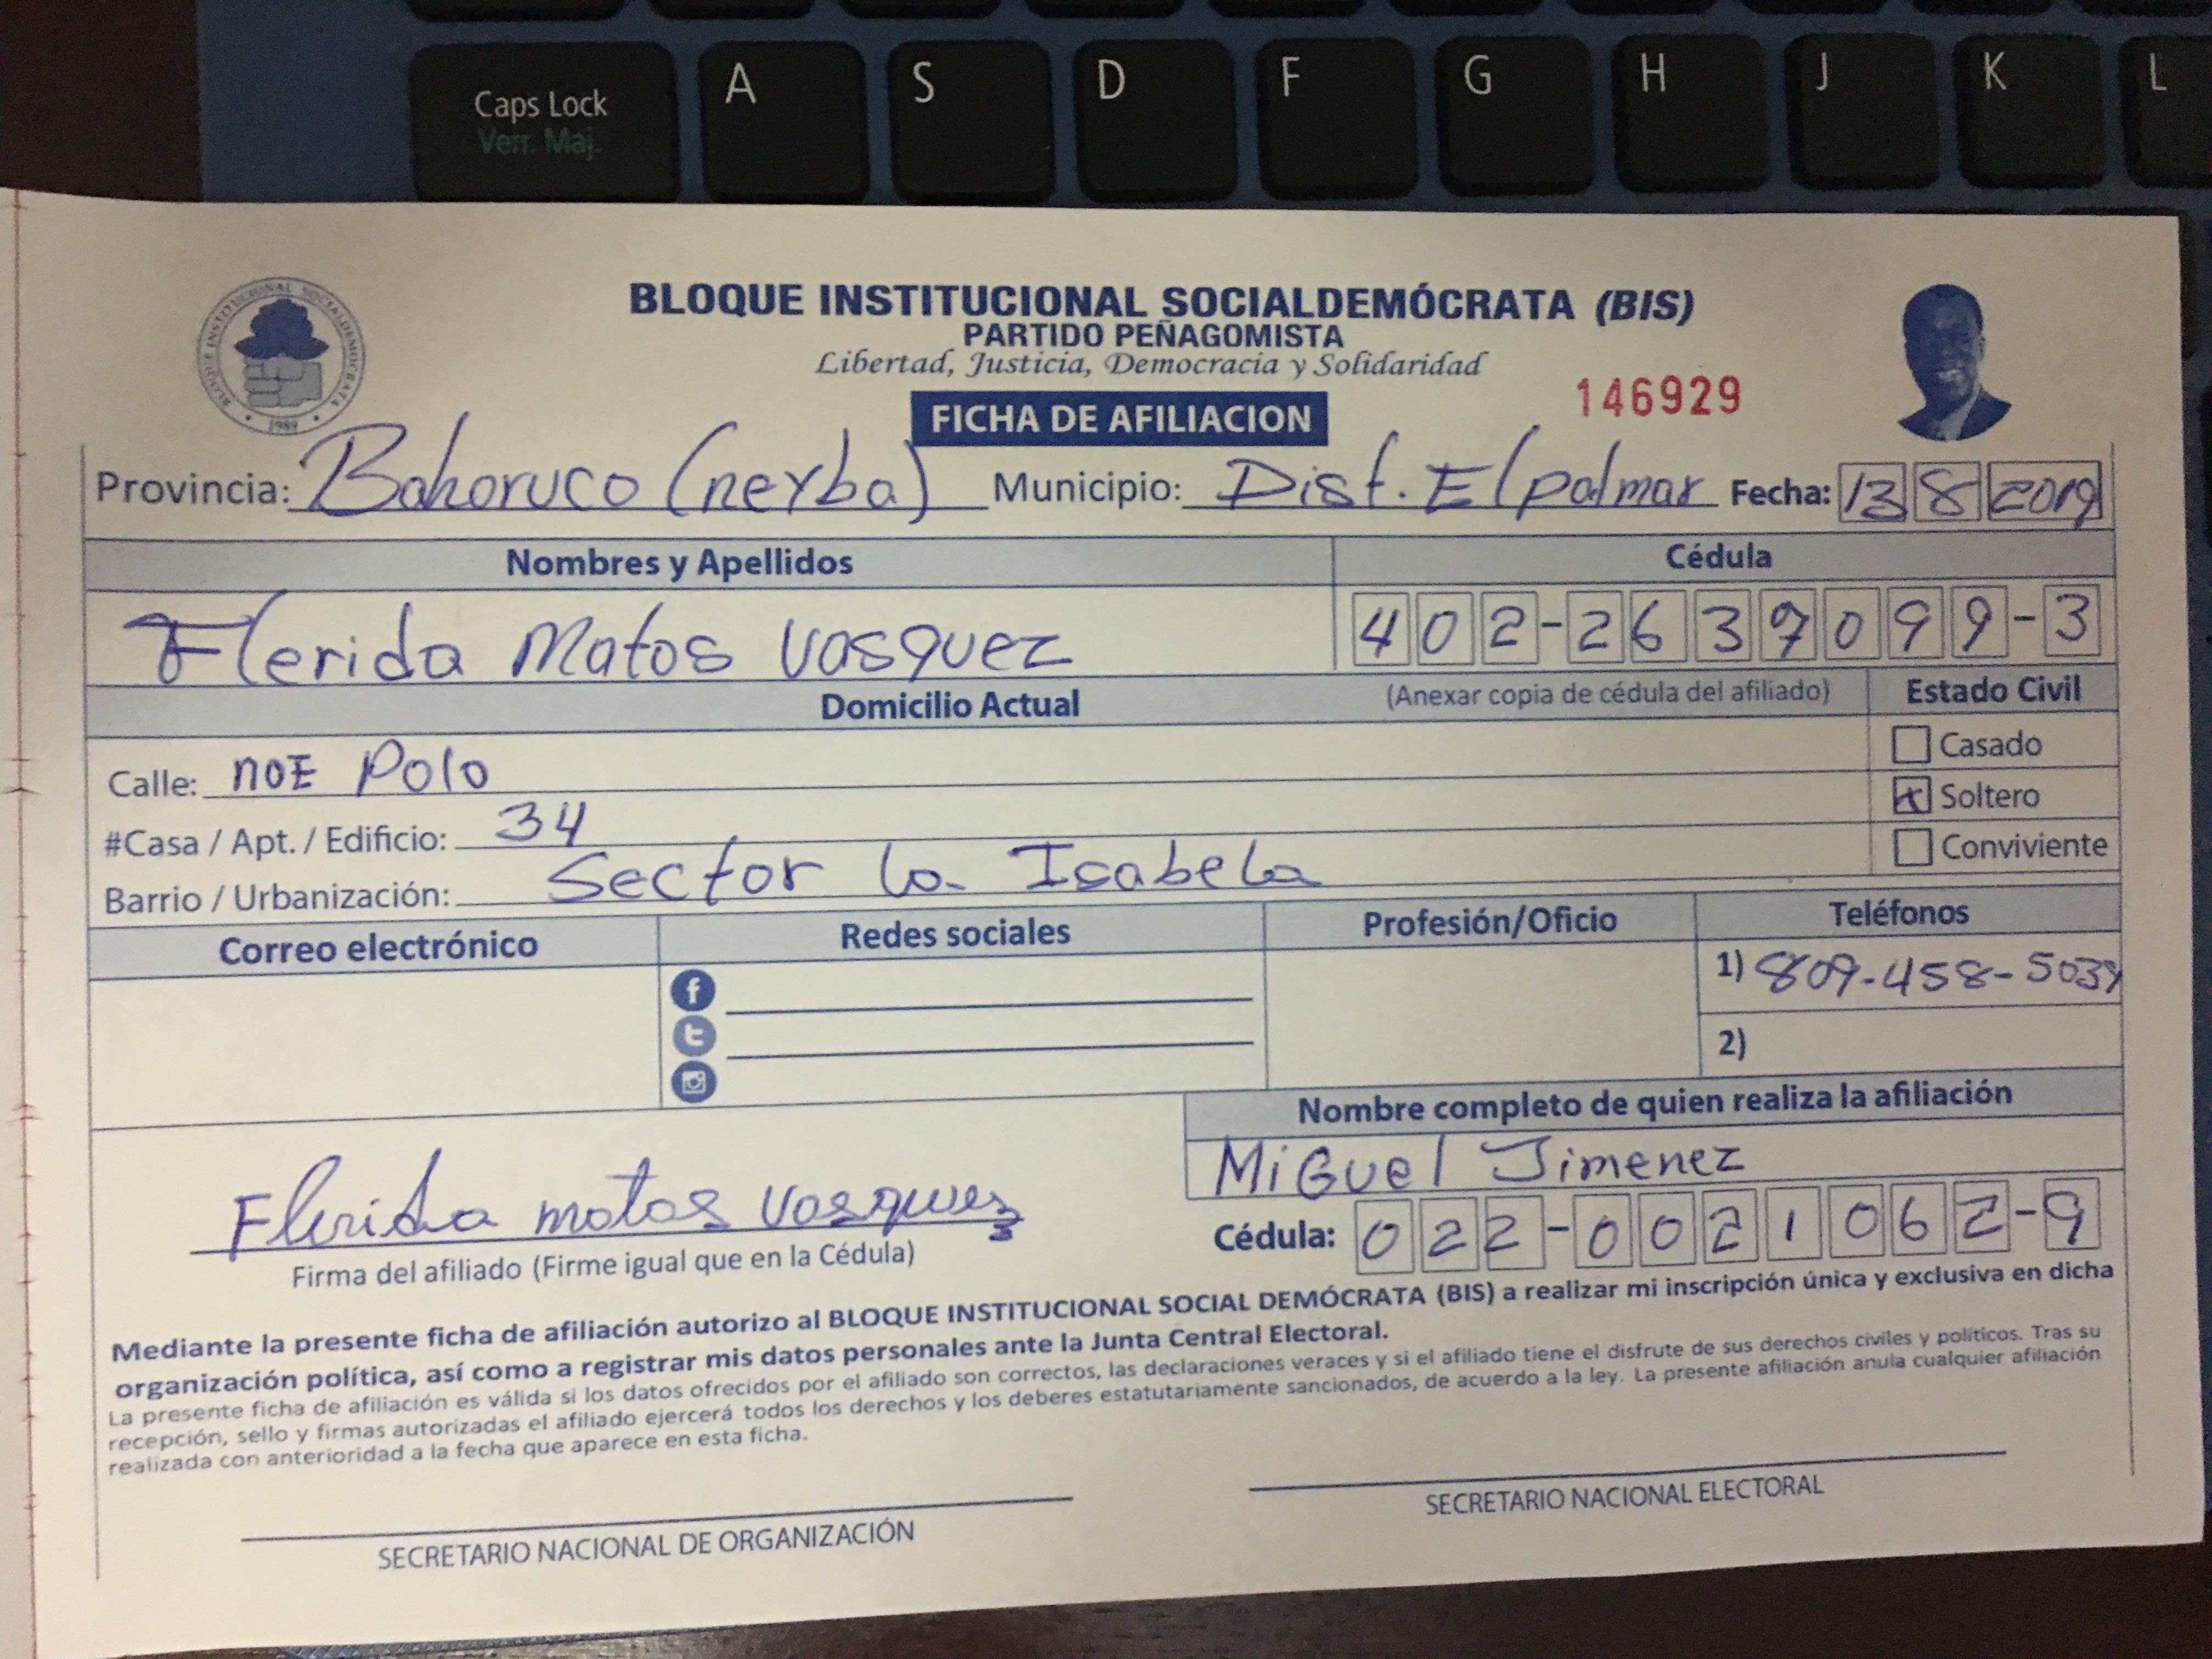 Caps Lock A S D F G H J K L
Verr. Maj.
BLOQUE INSTITUCIONAL SOCIALDEMÓCRATA (BIS)
PARTIDO PEÑAGOMISTA
Libertad, Justicia, Democracia y Solidaridad
BLOQUE INSTITUCIONAL SOCIALDEMOCRATA
1989
146929
FICHA DE AFILIACION
Provincia: Bahoruco (neyba) Municipio: Dist. El palmar Fecha: 13 8 2019
Nombres y Apellidos Cédula
Flerida Matos Vasquez 402-2637099-3
Domicilio Actual (Anexar copia de cédula del afiliado) Estado Civil
Calle: noE Polo Casado
#Casa / Apt. / Edificio: 34 Soltero
Barrio / Urbanización: Sector la Isabela Conviviente
Correo electrónico Redes sociales Profesión/Oficio Teléfonos
1) 809-458-5034
2)
Nombre completo de quien realiza la afiliación
MiGuel Jimenez
Flerida matos Vasquez Cédula: 022-0021062-9
Firma del afiliado (Firme igual que en la Cédula)
Mediante la presente ficha de afiliación autorizo al BLOQUE INSTITUCIONAL SOCIAL DEMÓCRATA (BIS) a realizar mi inscripción única y exclusiva en dicha
organización política, así como a registrar mis datos personales ante la Junta Central Electoral.
La presente ficha de afiliación es válida si los datos ofrecidos por el afiliado son correctos, las declaraciones veraces y si el afiliado tiene el disfrute de sus derechos civiles y políticos. Tras su
recepción, sello y firmas autorizadas el afiliado ejercerá todos los derechos y los deberes estatutariamente sancionados, de acuerdo a la ley. La presente afiliación anula cualquier afiliación
realizada con anterioridad a la fecha que aparece en esta ficha.
SECRETARIO NACIONAL DE ORGANIZACIÓN SECRETARIO NACIONAL ELECTORAL